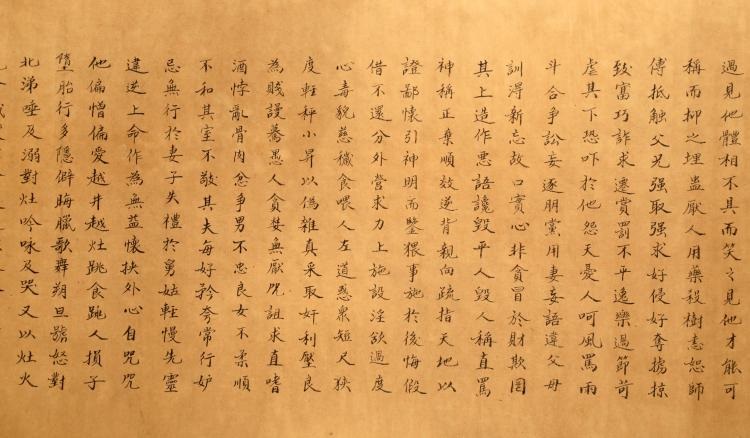 遇見他體相不具而笑之見他才能可
稱而抑之埋蠱厭人用藥殺樹恚怒師
傅抵觸父兄强取强求好侵好奪擄掠
致富巧詐求遷賞罰不平逸樂過節苛
虐其下恐吓於他怨天憂人呵風罵雨
斗合爭訟妄逐朋黨用妻妾語違父母
訓得新忘故口實心非貪冒於財欺罔
其上造作惡語讒毀平人毀人稱直罵
神稱正棄順效逆背親向疏指天地以
證鄙懷引神明而鑒猥事施於後悔假
借不還分外營求力上施設淫欲過度
心毒貌慈穢食喂人左道惑眾短尺狹
度輕秤小昇以偽雜真采取奸利壓良
為賤謾驀愚人貪婪無厭咒詛求直嗜
酒悖亂骨肉忿爭男不忠良女不柔順
不和其室不敬其夫每好矜夸常行妒
忌無行於妻子失禮於舅姑輕慢先靈
違逆上命作為無益懷挾外心自咒咒
他偏憎偏愛越井越灶跳食跳人損子
墮胎行多隱僻晦臘歌舞朔旦號怒對
北涕唾及溺對灶吟咏及哭又以灶火